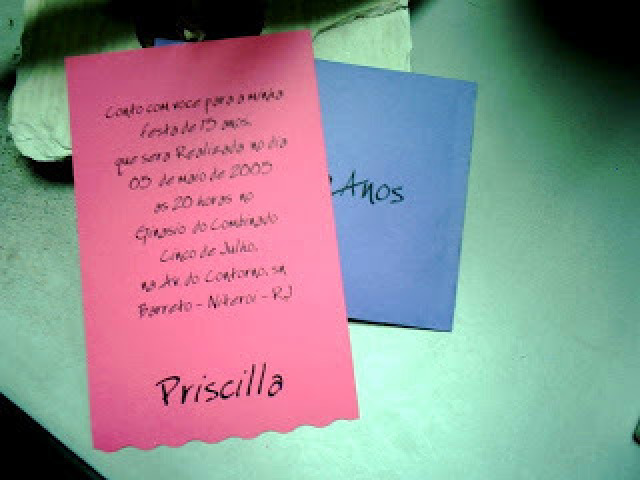 Conto com voce para a minha
festa de 15 anos,
que sera Realizada no dia
05 de maio de 2005
as 20 horas no
Ginasio do Combinado
Cinco de Julho,
na Av. do Contorno, sn
Barreto - Niteroi - RJ
Priscilla
Anos